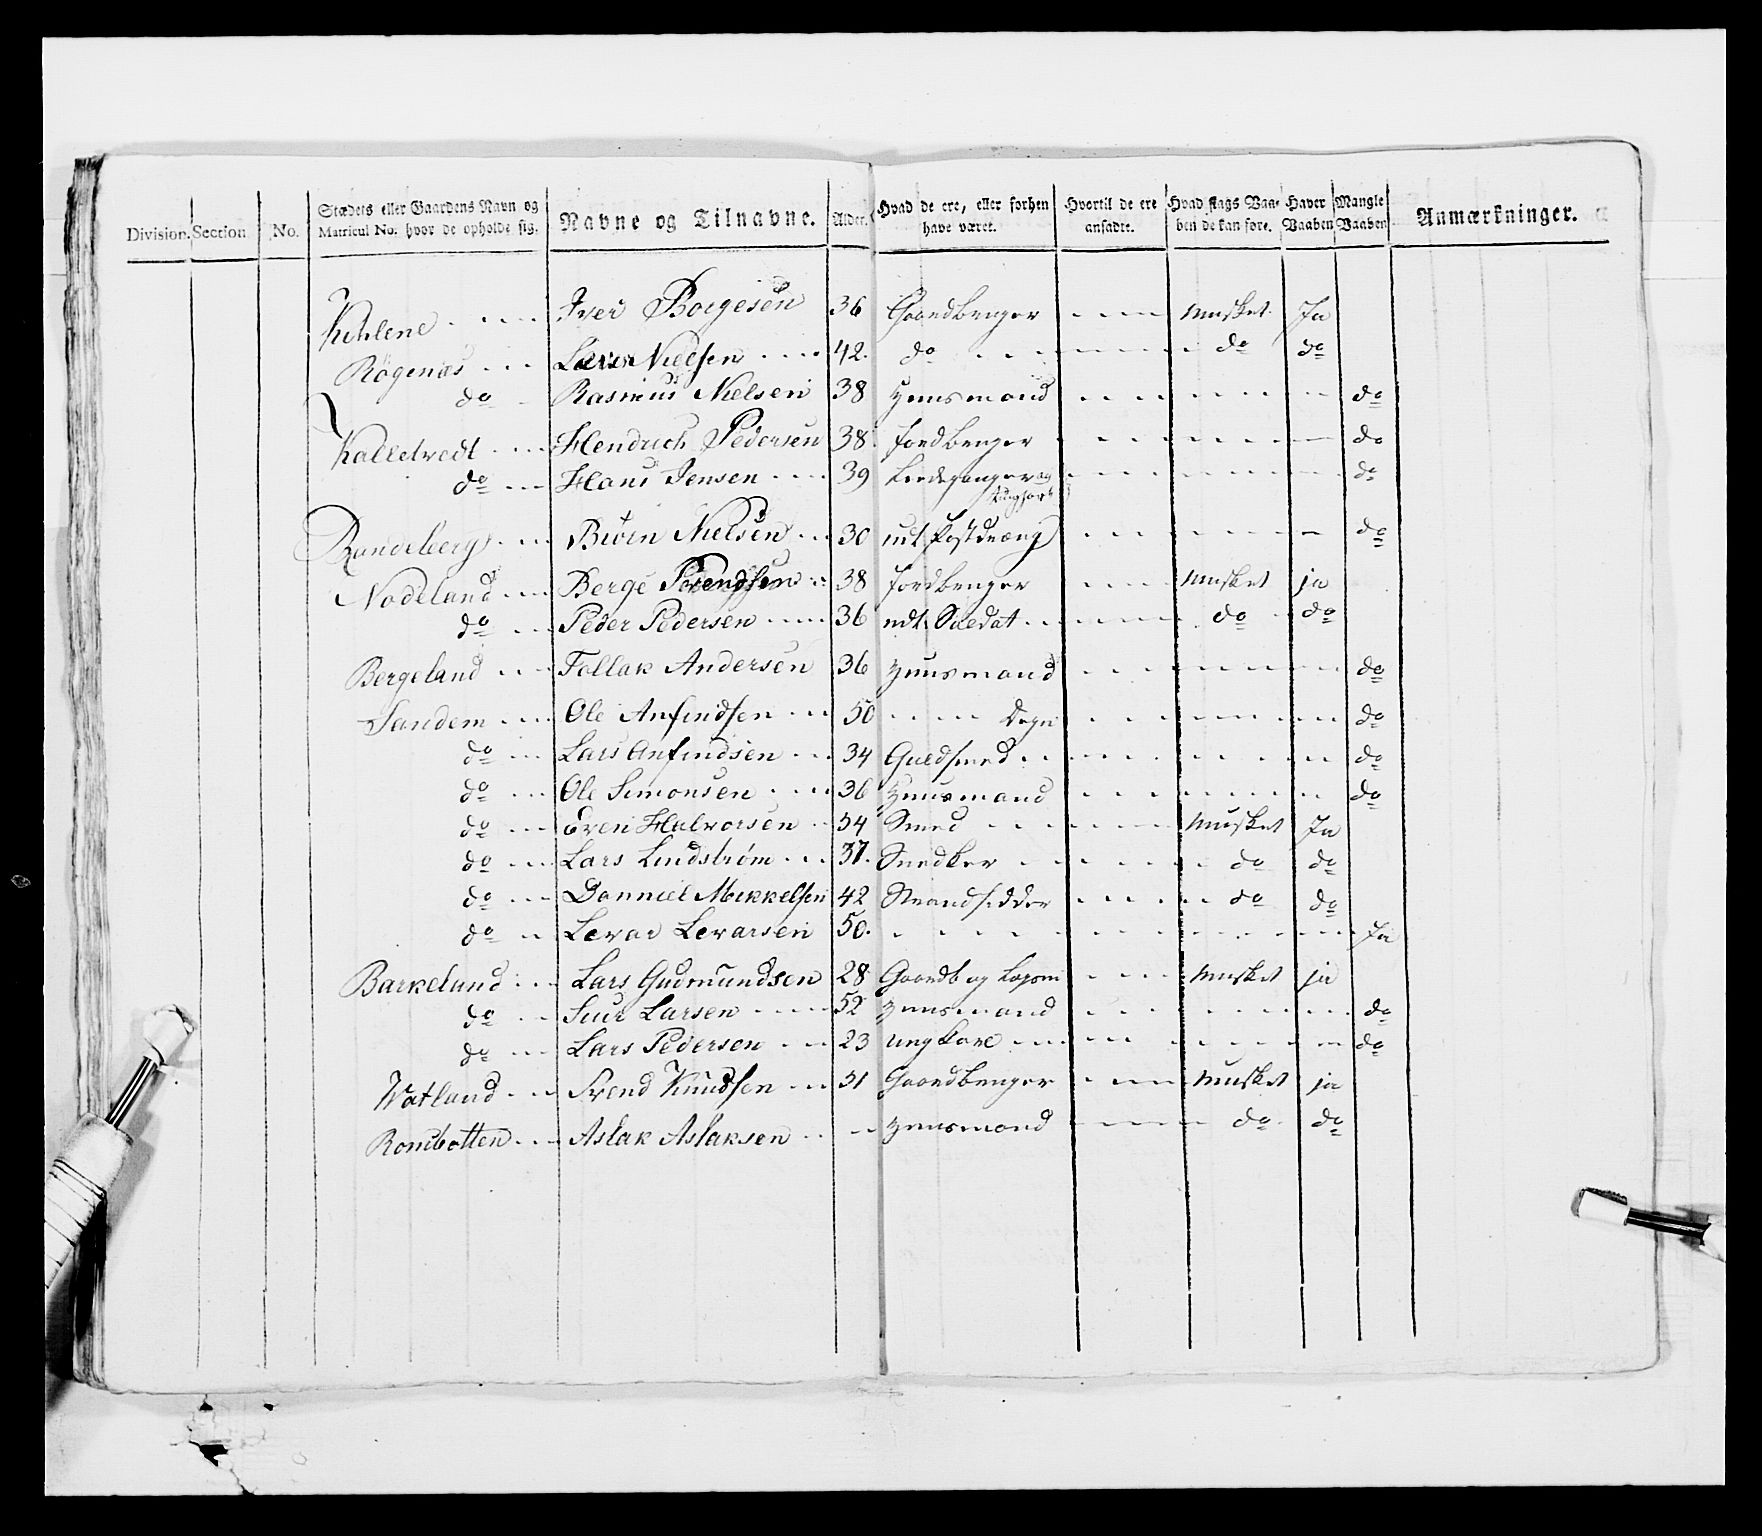 Division. Section No. Stædets eller Gaardens Navn og Matricul No. hvor de opholde sig. Navne og Tilnavne. Alder. Hvad de ere, eller forhen have været. Hvortil de ere ansadte. Hvad slags Vaaben de kan føre. Haver Vaaben Mangle Vaaben Anmærkninger.
Iver Borgesen 36 Gaardbruger Musket Ja
Røgenæs Lars Nielsen 42. do do do
do Rasmus Nielsen 38 Huusmand do
Kalletvedt Hendrich Pedersen 38 Jordbruger do
do Hans Jensen 39 do
Randeberg Biørn Nielsen 30 udt Postdræng do
Nodeland Berge Svendsen 38 Jordbruger Musket ja
do Peder Pedersen 36 udt Soldat do do
Bergeland Tollak Andersen 36 Huusmand do
Sandem Ole Anfindsen 50 Degn do
do Lars Anfindsen 34 Guldsmed do
do Ole Simonsen 36 Huusmand do
do Even Halvorsen 54 Smed Musket Ja
do Lars Lindstrøm 37. Snedker do do
do Danniel Mikkelsen 42 Strandsidder do do
do Levar Levarsen 50. Ja
Barkeland Lars Gudmundsen 28 Gaardb og Musket ja
do Siur Larsen 52 Huusmand do
do Lars Pedersen 23 ungkarl do
Watland Svend Knudsen 51 Gaardbruger Musket ja
Rombotten Aslak Aslaksen Huusmand do do